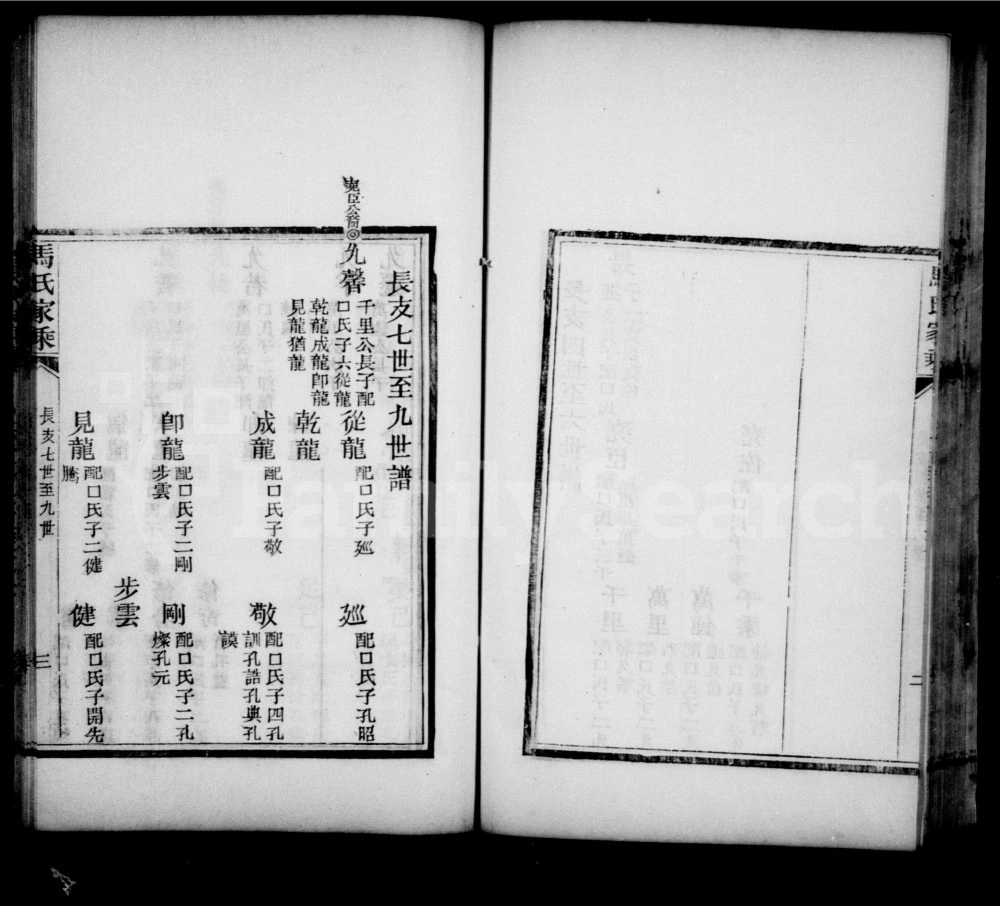 馬氏家乘
二
長支七世至九世譜
堯臣公裔◎九聲
千里公長子配
口氏子六從龍
乾龍成龍卽龍
見龍猶龍
從龍
配口氏子廵
乾龍
成龍
配口氏子敬
卽龍
配口氏子二剛
步雲
見龍
配口氏子二健
騰
廵
配口氏子孔昭
敬
配口氏子四孔
訓孔誥孔典孔
謨
剛
配口氏子二孔
燦孔元
步雲
健
配口氏子開先
馬氏家乘
長支七世至九世
三
FamilySearch